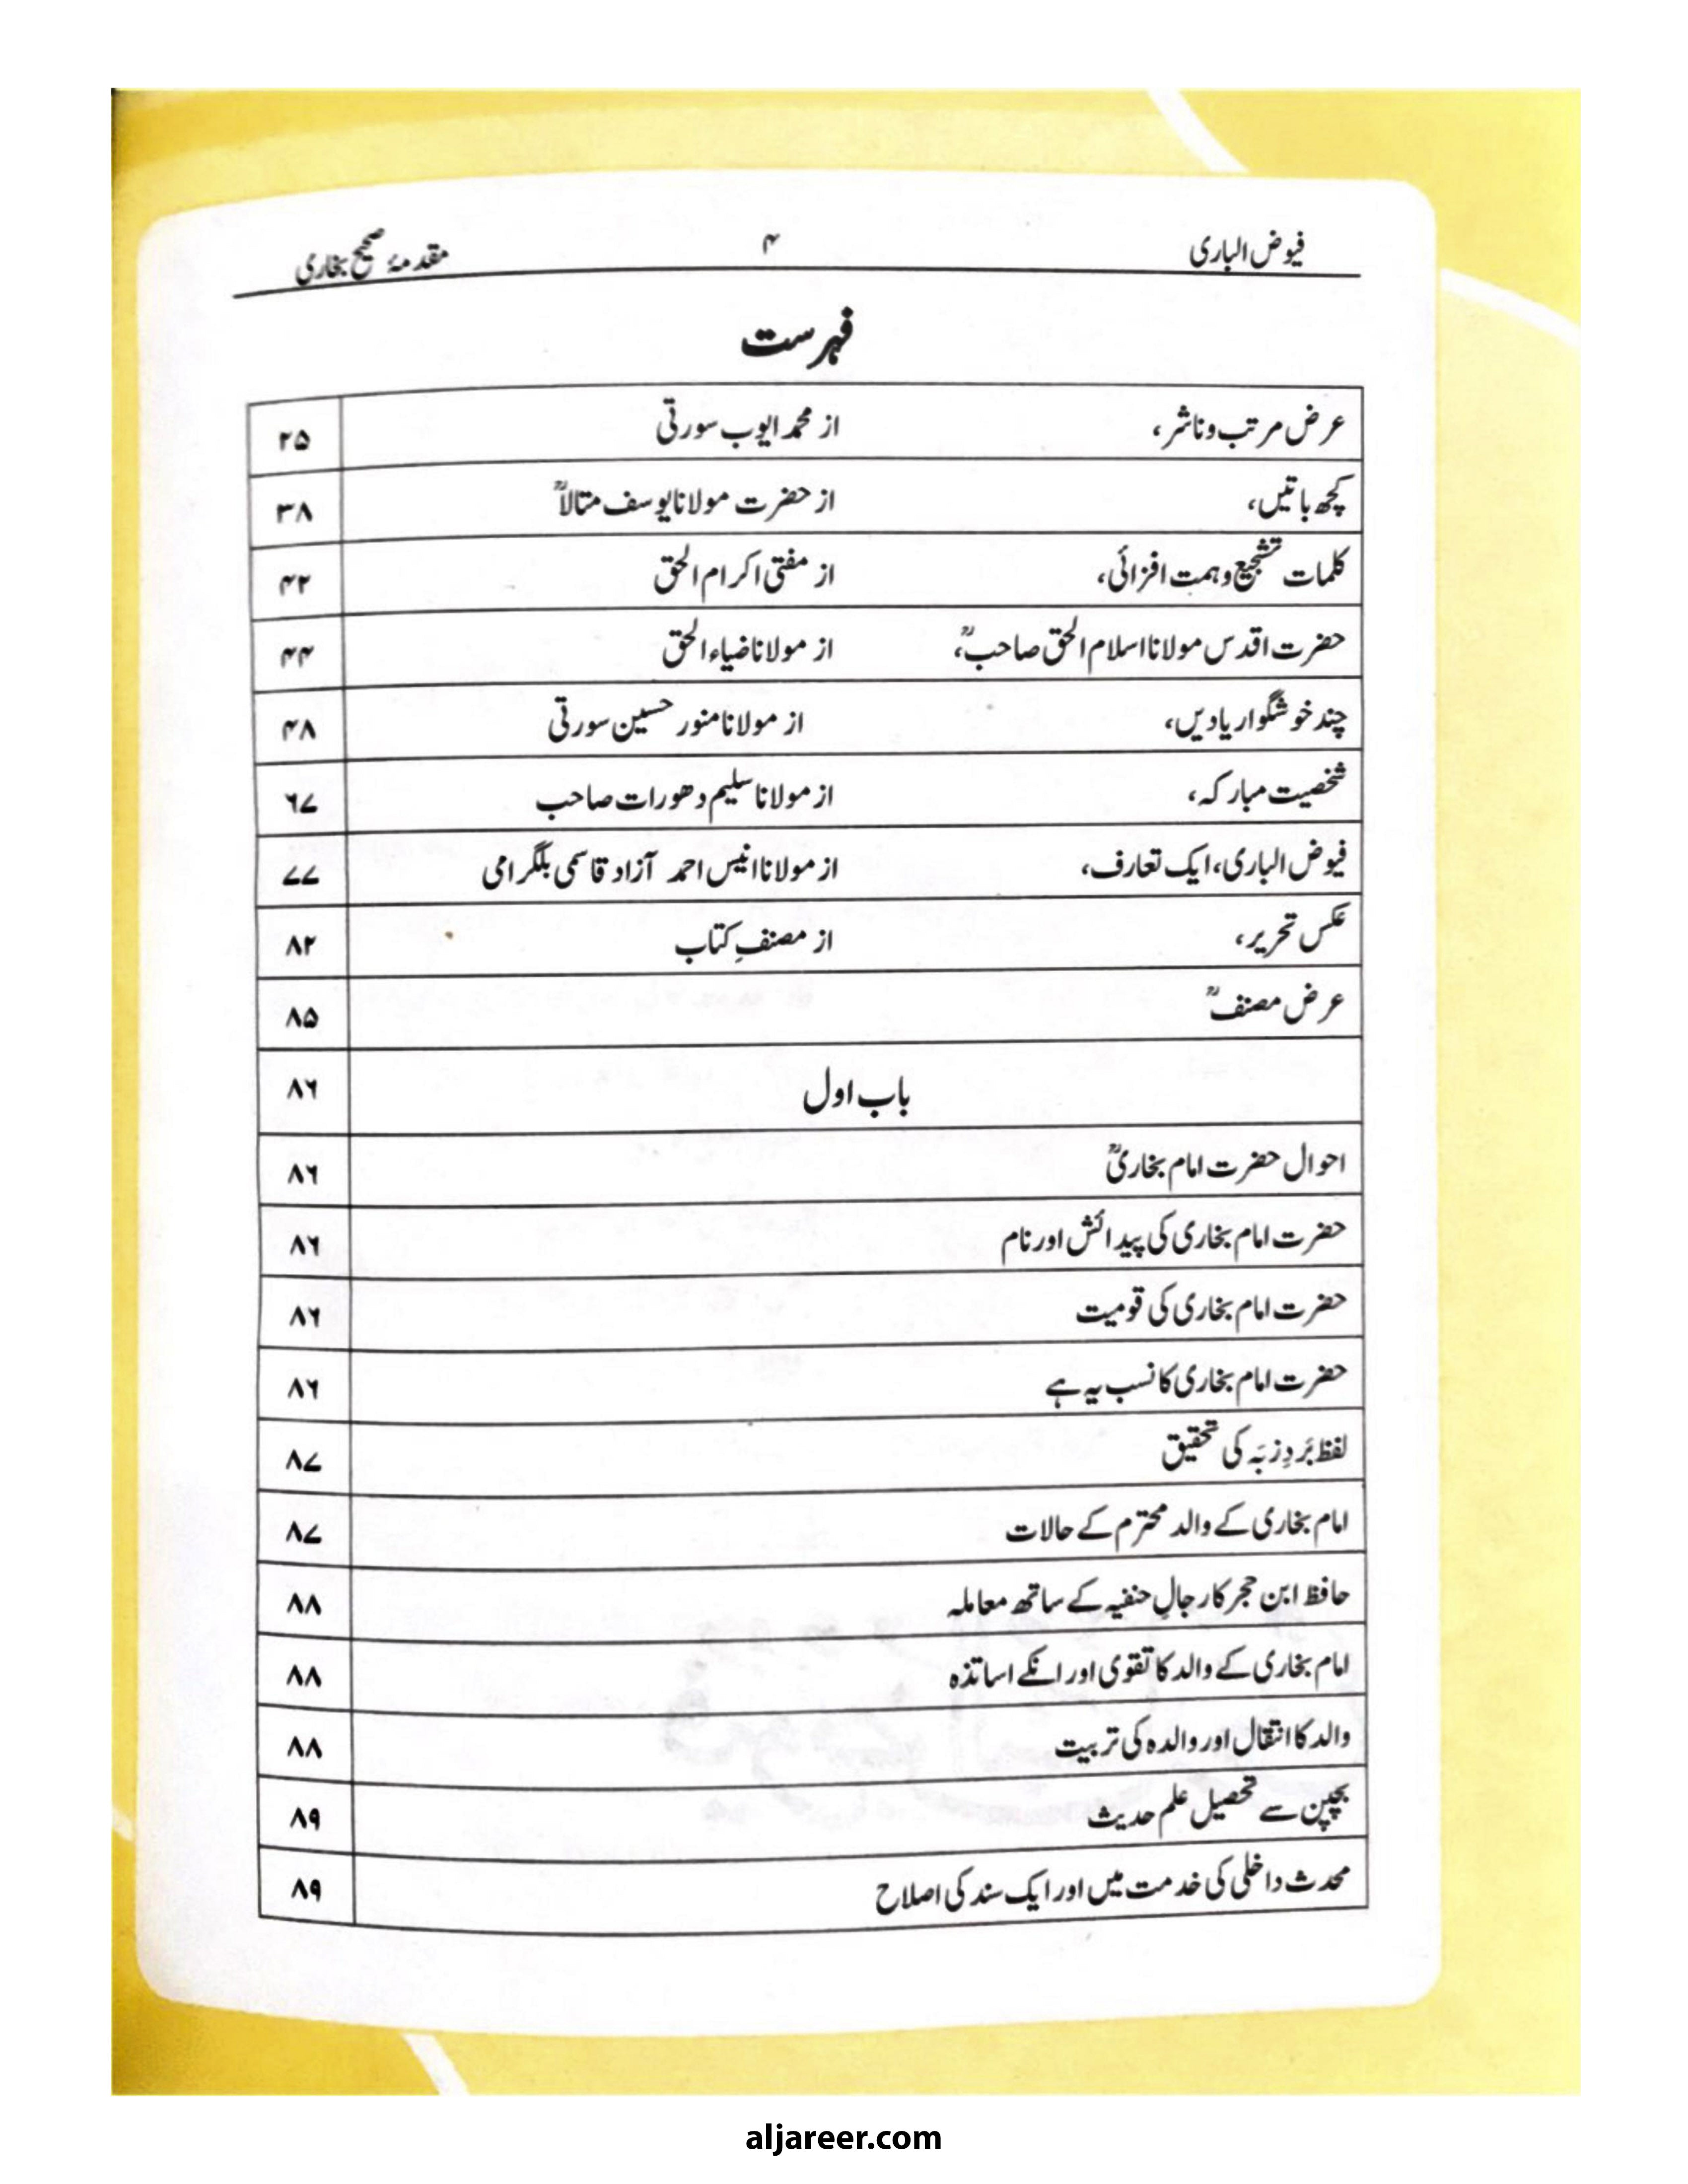 فیوض الباری ۴ مقدمۂ صحیح بخاری
فہرست
عرض مرتب وناشر، از محمد ایوب سورتی ۲۵
کچھ باتیں، از حضرت مولانا یوسف متالاؒ ۳۸
کلمات تشجیع وہمت افزائی، از مفتی اکرام الحق ۴۲
حضرت اقدس مولانا اسلام الحق صاحبؒ، از مولانا ضیاء الحق ۴۴
چند خوشگوار یادیں، از مولانا منور حسین سورتی ۴۸
شخصیت مبارکہ، از مولانا سلیم دھورات صاحب ۶۷
فیوض الباری، ایک تعارف، از مولانا انیس احمد آزاد قاسمی بلگرامی ۷۷
عکس تحریر، از مصنفِ کتاب ۸۲
عرض مصنفؒ ۸۵
باب اول ۸۶
احوال حضرت امام بخاریؒ ۸۶
حضرت امام بخاری کی پیدائش اور نام ۸۶
حضرت امام بخاری کی قومیت ۸۶
حضرت امام بخاری کا نسب یہ ہے ۸۶
لفظ بَردِزبَہ کی تحقیق ۸۷
امام بخاری کے والد محترم کے حالات ۸۷
حافظ ابن حجر کا رجالِ حنفیہ کے ساتھ معاملہ ۸۸
امام بخاری کے والد کا تقوی اور انکے اساتذہ ۸۸
والد کا انتقال اور والدہ کی تربیت ۸۸
بچپن سے تحصیل علم حدیث ۸۹
محدث داخلی کی خدمت میں اور ایک سند کی اصلاح ۸۹
aljareer.com